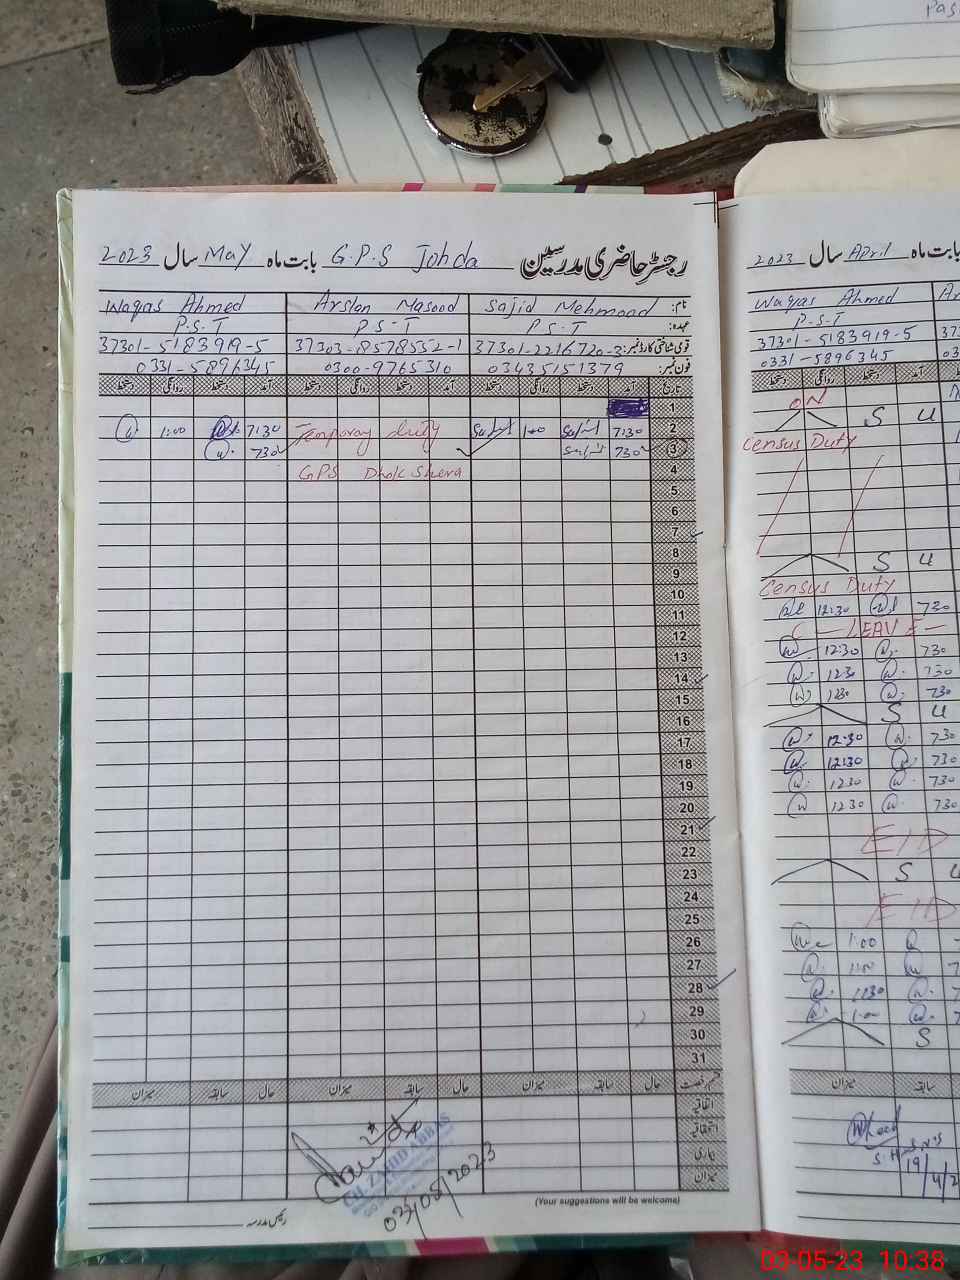 رجسٹر حاضری مدرسین G.P.S Johda بابت ماہ May سال 2023
نام: Sajid Mehmood Arslan Masood Waqas Ahmed
عہدہ: P.S.T P.S.T P.S.T
قومی شناختی کارڈ نمبر: 37301-2216720-3 37303-8578552-1 37301-5183919-5
فون نمبر: 03435151379 0300-9765310 0331-5896345
تاریخ آمد دستخط روانگی دستخط آمد دستخط روانگی دستخط آمد دستخط روانگی دستخط
1
2 7:30 1:00 Temporay duty 7:30 1:00
3 730 730
4 GPS Dhok Shera
5
6
7
8
9
10
11
12
13
14
15
16
17
18
19
20
21
22
23
24
25
26
27
28
29
30
31
قسم رخصت حال سابقہ میزان حال سابقہ میزان حال سابقہ میزان
اتفاقیہ
استحقاقیہ
بیماری
میزان
CH ZAHID ABBAS
03/05/2023
(Your suggestions will be welcome)
رئیس مدرسہ
بابت ماہ April سال 2023
Waqas Ahmed
P.S.T
37301-5183919-5
0331-5896345
آمد دستخط روانگی دستخط
ON
S U
Census Duty
S U
Census Duty
12:30 730
LEAVE
12:30 730
1230 730
1230 730
S U
12:30 730
12:30 730
1230 730
1230 730
EID
S U
EID
1:00
1:00
1130
1:00
S
سابقہ میزان
19/4/2
03-05-23 10:38